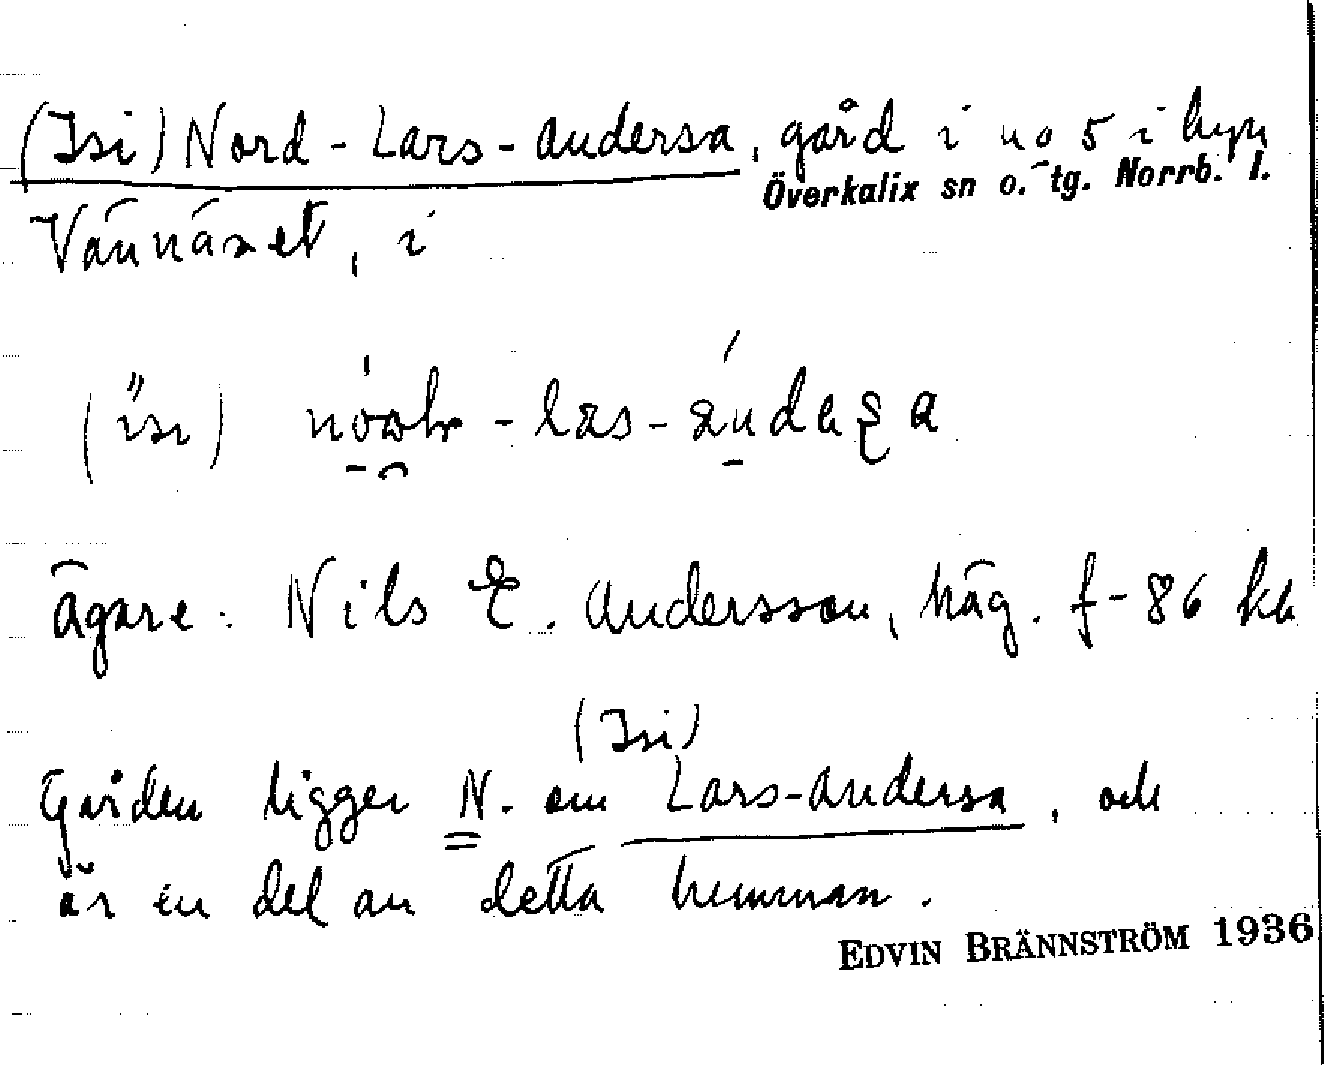 (Isi) Nord-Lars-Andersa, gård i no 5 i byn
Överkalix sn o. tg. Norrb. l.
Vännäset, i
(isı)
ägare: Nils E. Andersson, häg. f-86 hh
(Isi)
Gården ligger N. om Lars-Andersa, och
är en del av detta hemman.
EDVIN BRÄNNSTRÖM 1936